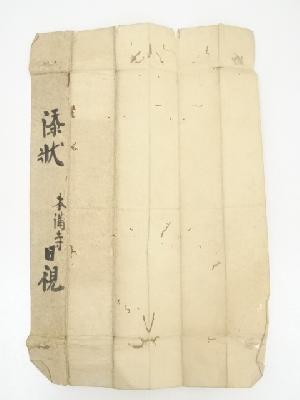 添状 本満寺日視